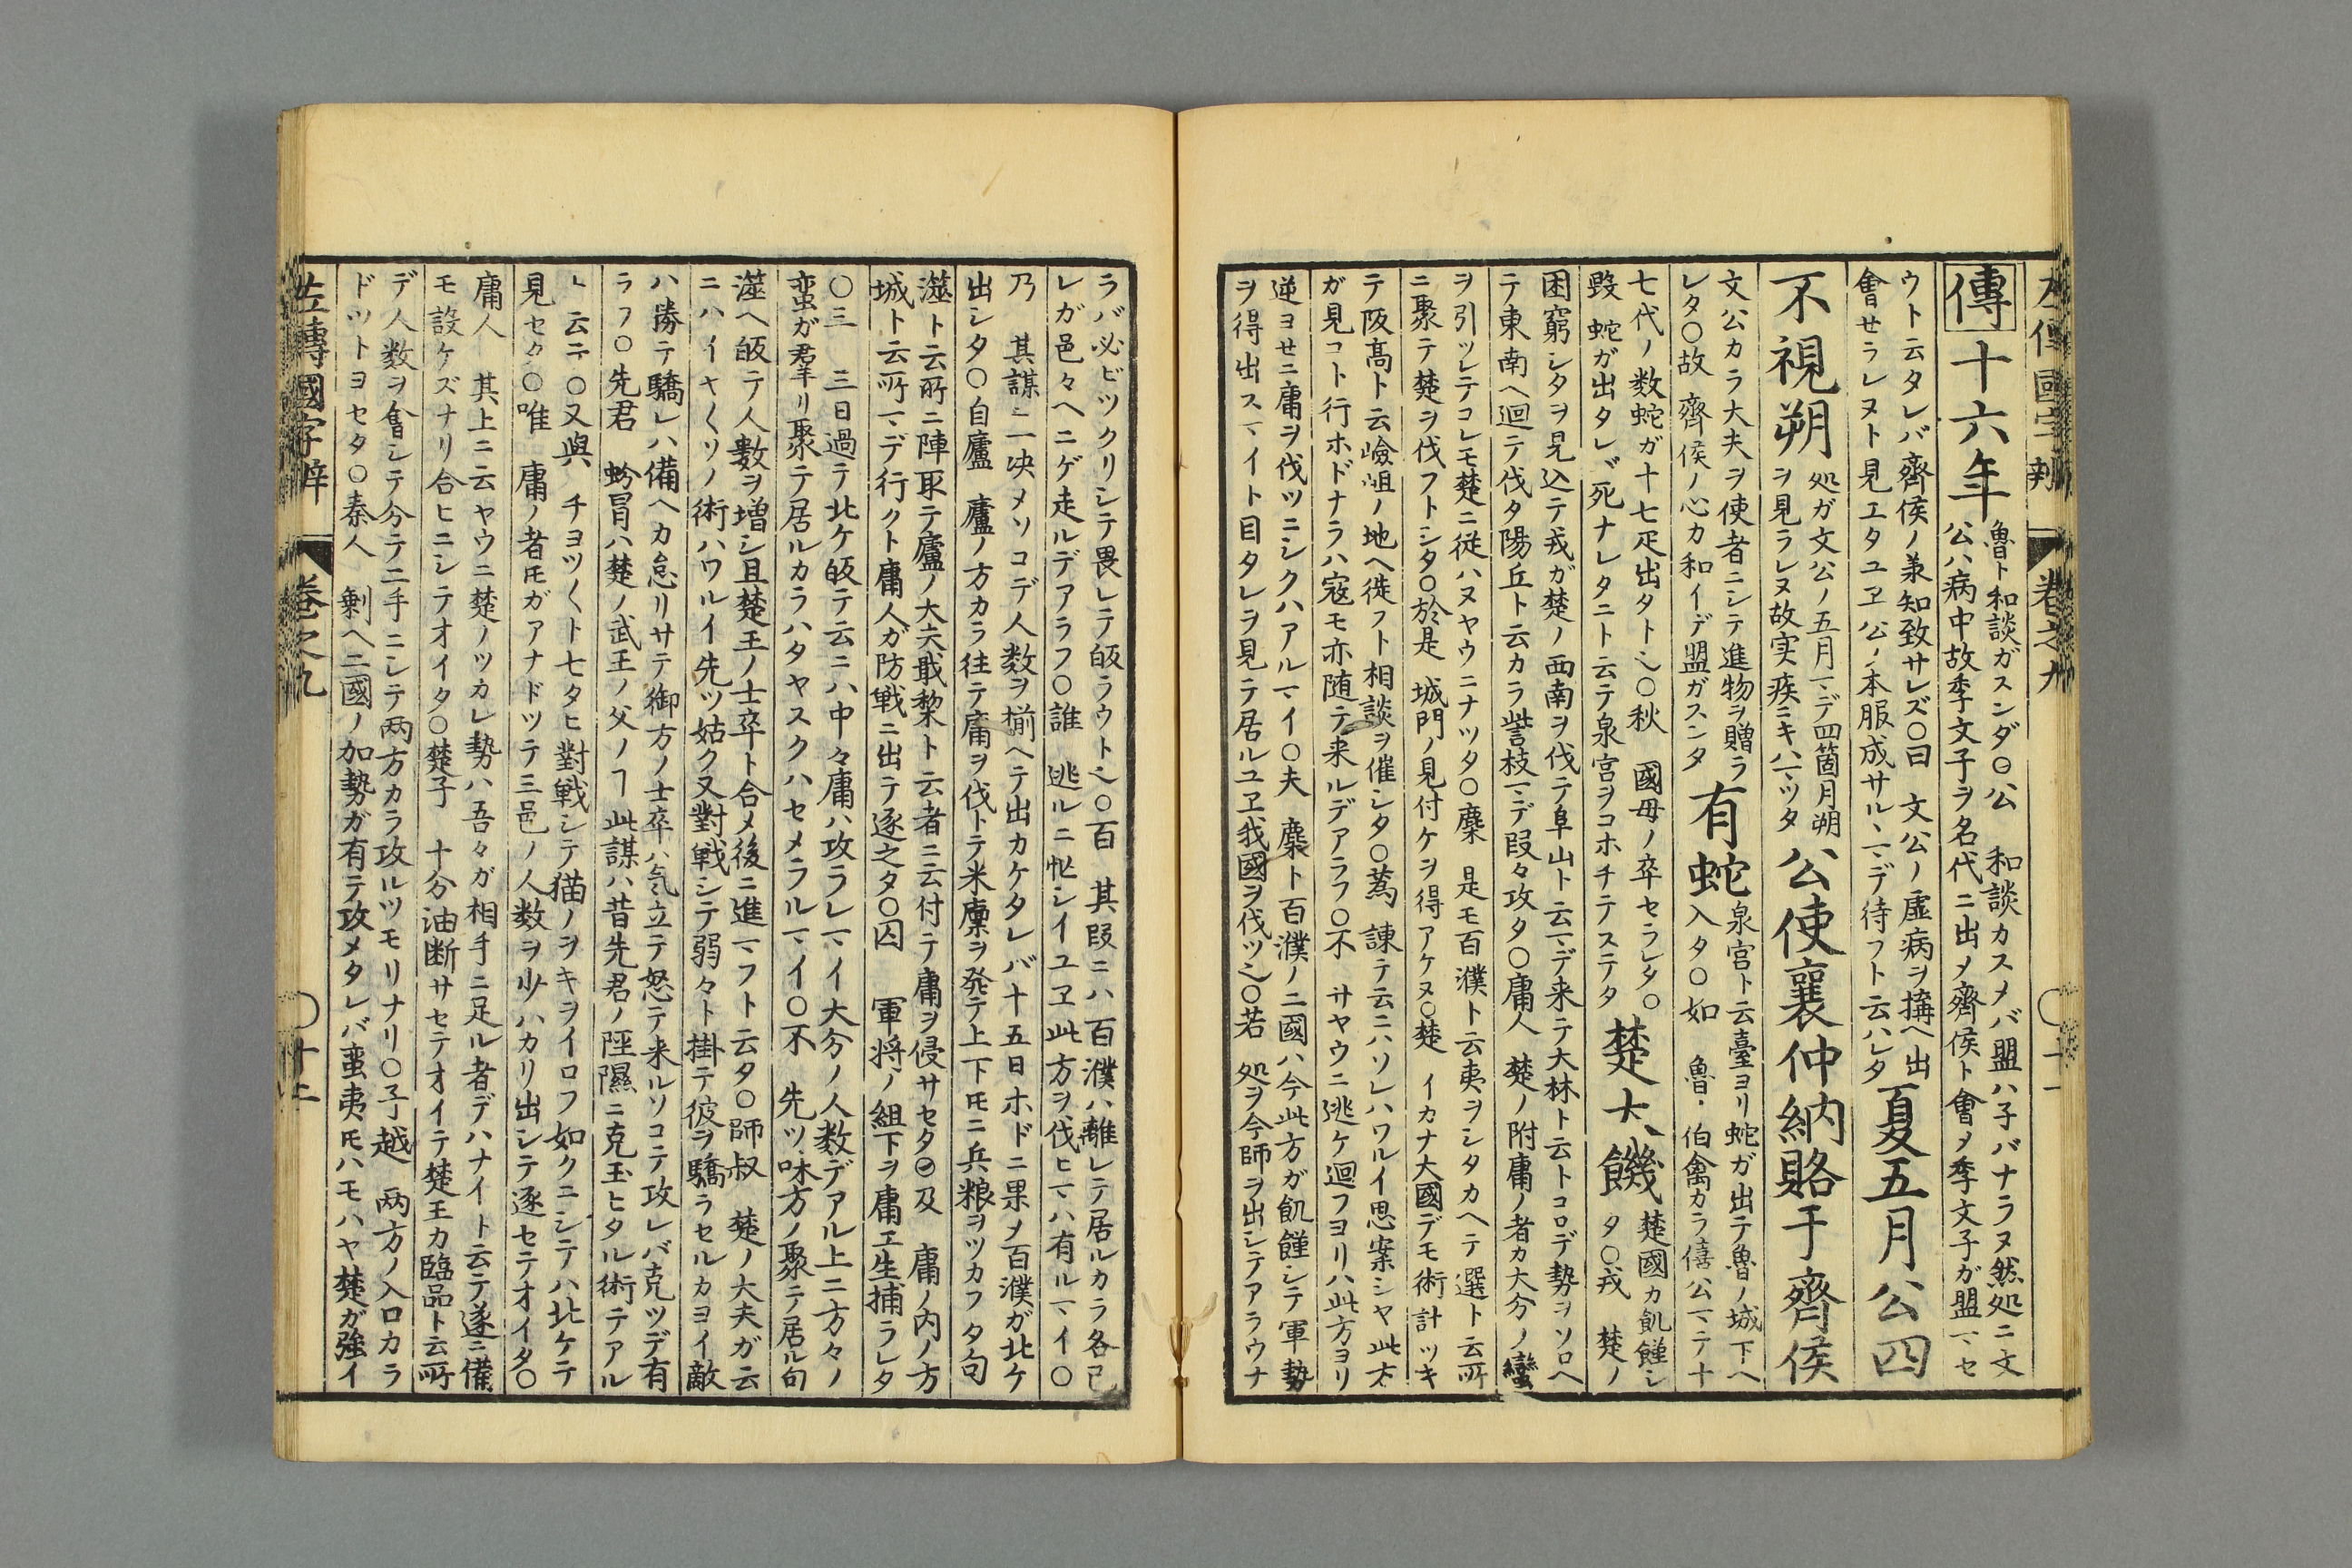 左傳國字辨 卷之九 〇十一
傳十六年 魯ト和談ガスンダ〇公 和談カスメバ盟ハ子バナラヌ然処ニ文
公ハ病中故季文子ヲ名代ニ出メ齊侯ト會メ季文子ガ盟マセ
ウト云タレバ齊侯ノ兼知致サレズ〇曰 文公ノ虚病ヲ搆ヘ出
會せラレヌト見エタユヱ公ノ本服成サルヽマデ待フト云ハレタ 夏五月公四
不視朔 処ガ文公ノ五月マデ四箇月朔
ヲ見ラレヌ故实疾ニキハマツタ 公使襄仲納賂于齊侯
文公カラ大夫ヲ使者ニシテ進物ヲ贈ラ
レタ〇故 齊侯ノ心カ和イデ盟ガスンタ 有蛇 泉宮ト云臺ヨリ蛇ガ出テ魯ノ城下ヘ
入タ〇如 魯・伯禽カラ僖公マテ十
七代ノ数蛇ガ十七疋出タト也〇秋 國母ノ卒セラレタ〇
毀 蛇ガ出タレバ死ナレタニト云テ泉宮ヲコホチテステタ 楚大饑 楚國カ飢饉シ
タ〇戎 楚ノ
困窮シタヲ見込テ戎ガ楚ノ西南ヲ伐テ阜山ト云マデ来テ大林ト云トコロデ勢ヲソロヘ
テ東南ヘ迴テ伐タ陽丘ト云カラ訾枝マデ叚々攻タ〇庸人 楚ノ附庸ノ者カ大分ノ蠻
ヲ引ツレテコレモ楚ニ従ハヌヤウニナツタ〇麇 是モ百濮ト云夷ヲシタカヘテ選ト云所
ニ聚テ楚ヲ伐フトシタ〇於是 城門ノ見付ケヲ得アケヌ〇楚 イカナ大國デモ術計ツキ
テ阪髙ト云嶮岨ノ地ヘ徙フト相談ヲ催シタ〇蒍 諌テ云ニハソレハワルイ思案シヤ此方
ガ見コト行ホドナラハ寇モ亦随テ来ルデアラフ〇不 サヤウニ逃ケ迴フヨリハ此方ヨリ
逆ヨせニ庸ヲ伐ツニシクハアルマイ〇夫 麇ト百濮ノ二國ハ今此方ガ飢饉シテ軍勢
ヲ得出スマイト目タレヲ見テ居ルユヱ我國ヲ伐ツ也〇若 処ヲ今師ヲ出シテアラウナ
ラバ必ビツクリシテ畏レテ皈ラウト也〇百 其叚ニハ百濮ハ離レテ居ルカラ各己
レガ邑々ヘニゲ走ルデアラフ〇誰 逃ルニ忙シイユヱ此方ヲ伐ヒマハ有ルマイ〇
乃 其謀ニ一决メソコデ人数ヲ揃ヘテ出カケタレバ十五日ホドニ果メ百濮ガ北ケ
出シタ〇自廬 廬ノ方カラ往テ庸ヲ伐トテ米廩ヲ発テ上下トモニ兵粮ヲツカフタ句
澨ト云所ニ陣取テ廬ノ大夫戢棃ト云者ニ云付テ庸ヲ侵サセタ〇及 庸ノ内ノ方
城ト云所マデ行クト庸人ガ防戦ニ出テ逐之タ〇囚 軍将ノ組下ヲ庸エ生捕ラレタ
〇三 三日過テ北ケ皈テ云ニハ中々庸ハ攻ラレマイ大分ノ人数デアル上ニ方々ノ
蛮ガ君羊リ聚テ居ルカラハタヤスクハセメラルマイ〇不 先ツ味方ノ聚テ居ル句
澨ヘ皈テ人数ヲ增シ且楚王ノ士卒ト合メ後ニ進マフト云タ〇師叔 楚ノ大夫ガ云
ニハイヤ〱ソノ術ハワルイ先ツ姑ク又對戦シテ弱々ト掛テ彼ヲ驕ラセルカヨイ敵
ハ勝テ驕レハ備ヘカ怠リサテ御方ノ士卒ハ気立テ怒テ来ルソコテ攻レバ克ツデ有
ラフ〇先君 蚡冐ハ楚ノ武王ノ父ノ㕝 此謀ハ昔先君ノ陘隰ニ克玉ヒタル術テアル
ヽ云テ〇又與 チヨツ〱ト七タヒ對戦シテ猫ノヲキヲイロフ如クニシテハ北ケテ
見セタ〇唯 庸ノ者トモガアナドツテ三邑ノ人数ヲ少ハカリ出シテ逐セテオイタ〇
庸人 其上ニ云ヤウニ楚ノツカレ勢ハ吾々ガ相手ニ足ル者デハナイト云テ遂ニ備
モ設ケズナリ合ヒニシテオイタ〇楚子 十分油断サセテオイテ楚王カ臨品ト云所
デ人数ヲ會シテ分テ二手ニシテ两方カラ攻ルツモリナリ〇子越 两方ノ入口カラ
ドツトヨセタ〇秦人 剰ヘ二國ノ加勢ガ有テ攻メタレバ蛮夷トモハモハヤ楚ガ強イ
左傳國字辨 卷之九 〇十上